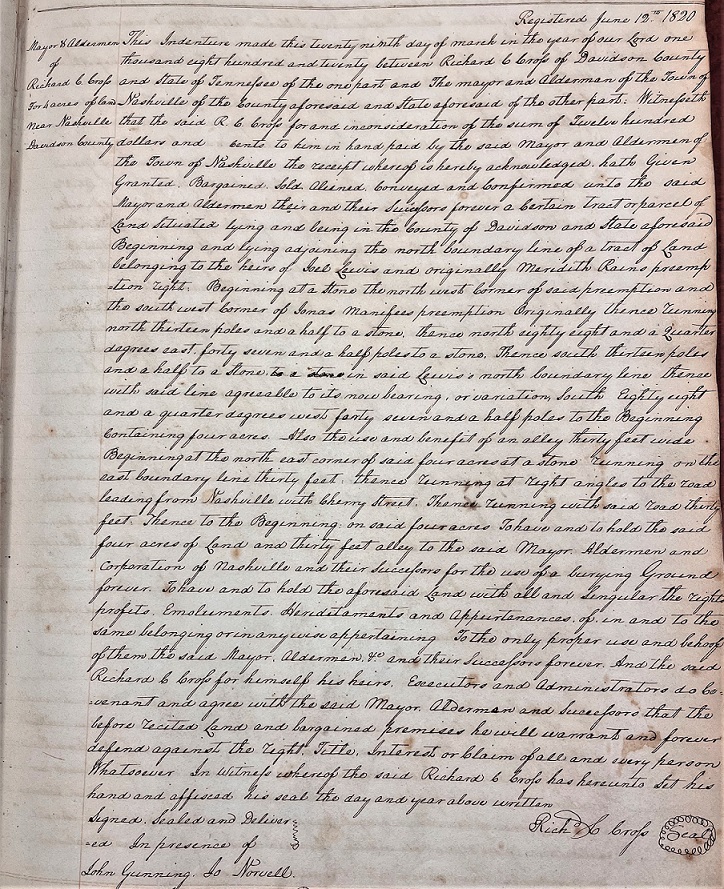 Registered June 12th 1820
Mayor & Aldermen
of
Richard C Cross
For 4 acres of Lan
Near Nashville
Davidson County
This Indenture made this twenty ninth day of march in the year of our Lord one
thousand eight hundred and twenty between Richard C Cross of Davidson County
and State of Tennessee of the one part and The mayor and Alderman of the Town of
Nashville of the County aforesaid and State aforesaid of the other part: Witnesseth
that the said R C Cross for and inconsideration of the sum of Twelve hundred
dollars and cents to him in hand paid by the said Mayor and Aldermen of
the Town of Nashville the receipt whereof is hereby acknowledged. hath Given
Granted. Bargained. Sold. Aliened. Conveyed and Confirmed unto the said
Mayor and Aldermen their and their Successors forever a Certain tract or parcel of
Land Situated lying and being in the County of Davidson and State aforesaid
Beginning and lying adjoining the north boundary line of a tract of Land
belonging to the heirs of Joel Lewis and originally Meredith Rains preemp
-tion right. Beginning at a Stone the north west Corner of said preemption and
the south west Corner of Jonas Manifees preemption Originally thence running
north thirteen poles and a half to a stone. thence north eighty eight and a Quarter
degrees east. forty seven and a half poles to a stone. Thence south thirteen poles
and a half to a Stone in said Lewis's north boundary line thence
with said line agreable to its now bearing. or variation. South Eighty eight
and a quarter degrees west forty seven and a half poles to the Beginning
Containing four acres Also the use and benefit of an alley thirty feet wide
Beginning at the north east corner of said four acres at a stone running on the
east boundary line thirty feet. thence running at right angles to the road
leading from Nashville with Cherry Street. Thence running with said road thirty
feet. Thence to the Beginning on said four acres To have and to hold the said
four acres of Land and thirty feet alley to the said Mayor. Aldermen and
Corporation of Nashville and their Successors for the use of a burying Ground
forever. To have and to hold the aforesaid Land with all and Singular the rights
profits. Emoluments. Hereditaments and Appurtenances. of. in and to the
same belonging or in any wise appertaining To the only proper use and behoof
of them the said Mayor. Alderman. &c and their Successors forever. And the said
Richard C Cross for himself his heirs. Executors and Administrators do Co
-venant and agree with the said Mayor. Alderman and Successors that the
before recited Land and bargained premises he will warrant and forever
defend against the right. Title. Interest or Claim of all and every person
Whatsoever In Witness whereof the said Richard C Cross has hereunto Set his
hand and affixed his seal the day and year above written
Signed. Sealed and Deliver
-ed In presence of
Richd C Cross Seal
John Gunning. Jo Norvell.